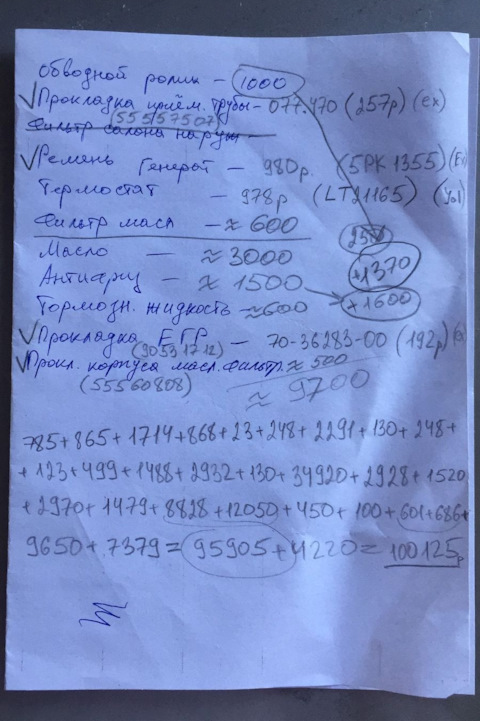 Обводной ролик – 1000
√ Прокладка приём. трубы – 077.470 (257р) (Ex)
(55557507)
Фильтр салона наружн –
√ Ремень Генерат – 980р. (5PK1355) (Ex)
Термостат – 978р (LT21165)
Фильтр масл – ≈ 600
Масло – ≈ 3000 +1370
Антифриз – ≈ 1500 +1600
Тормозн. жидкость ≈ 600
√ Прокладка ЕГР – 70-36283-00 (192р)
(90531712)
√ Прокл. корпуса масл. фильтр. ≈ 500
(55560808) ≈ 9700
785+865+1714+868+23+248+2291+130+248+
+123+499+1488+2932+130+34920+2928+1520
+2970+1479+8828+12050+450+100+601+686+
9650+7379=95905+4220=100125р